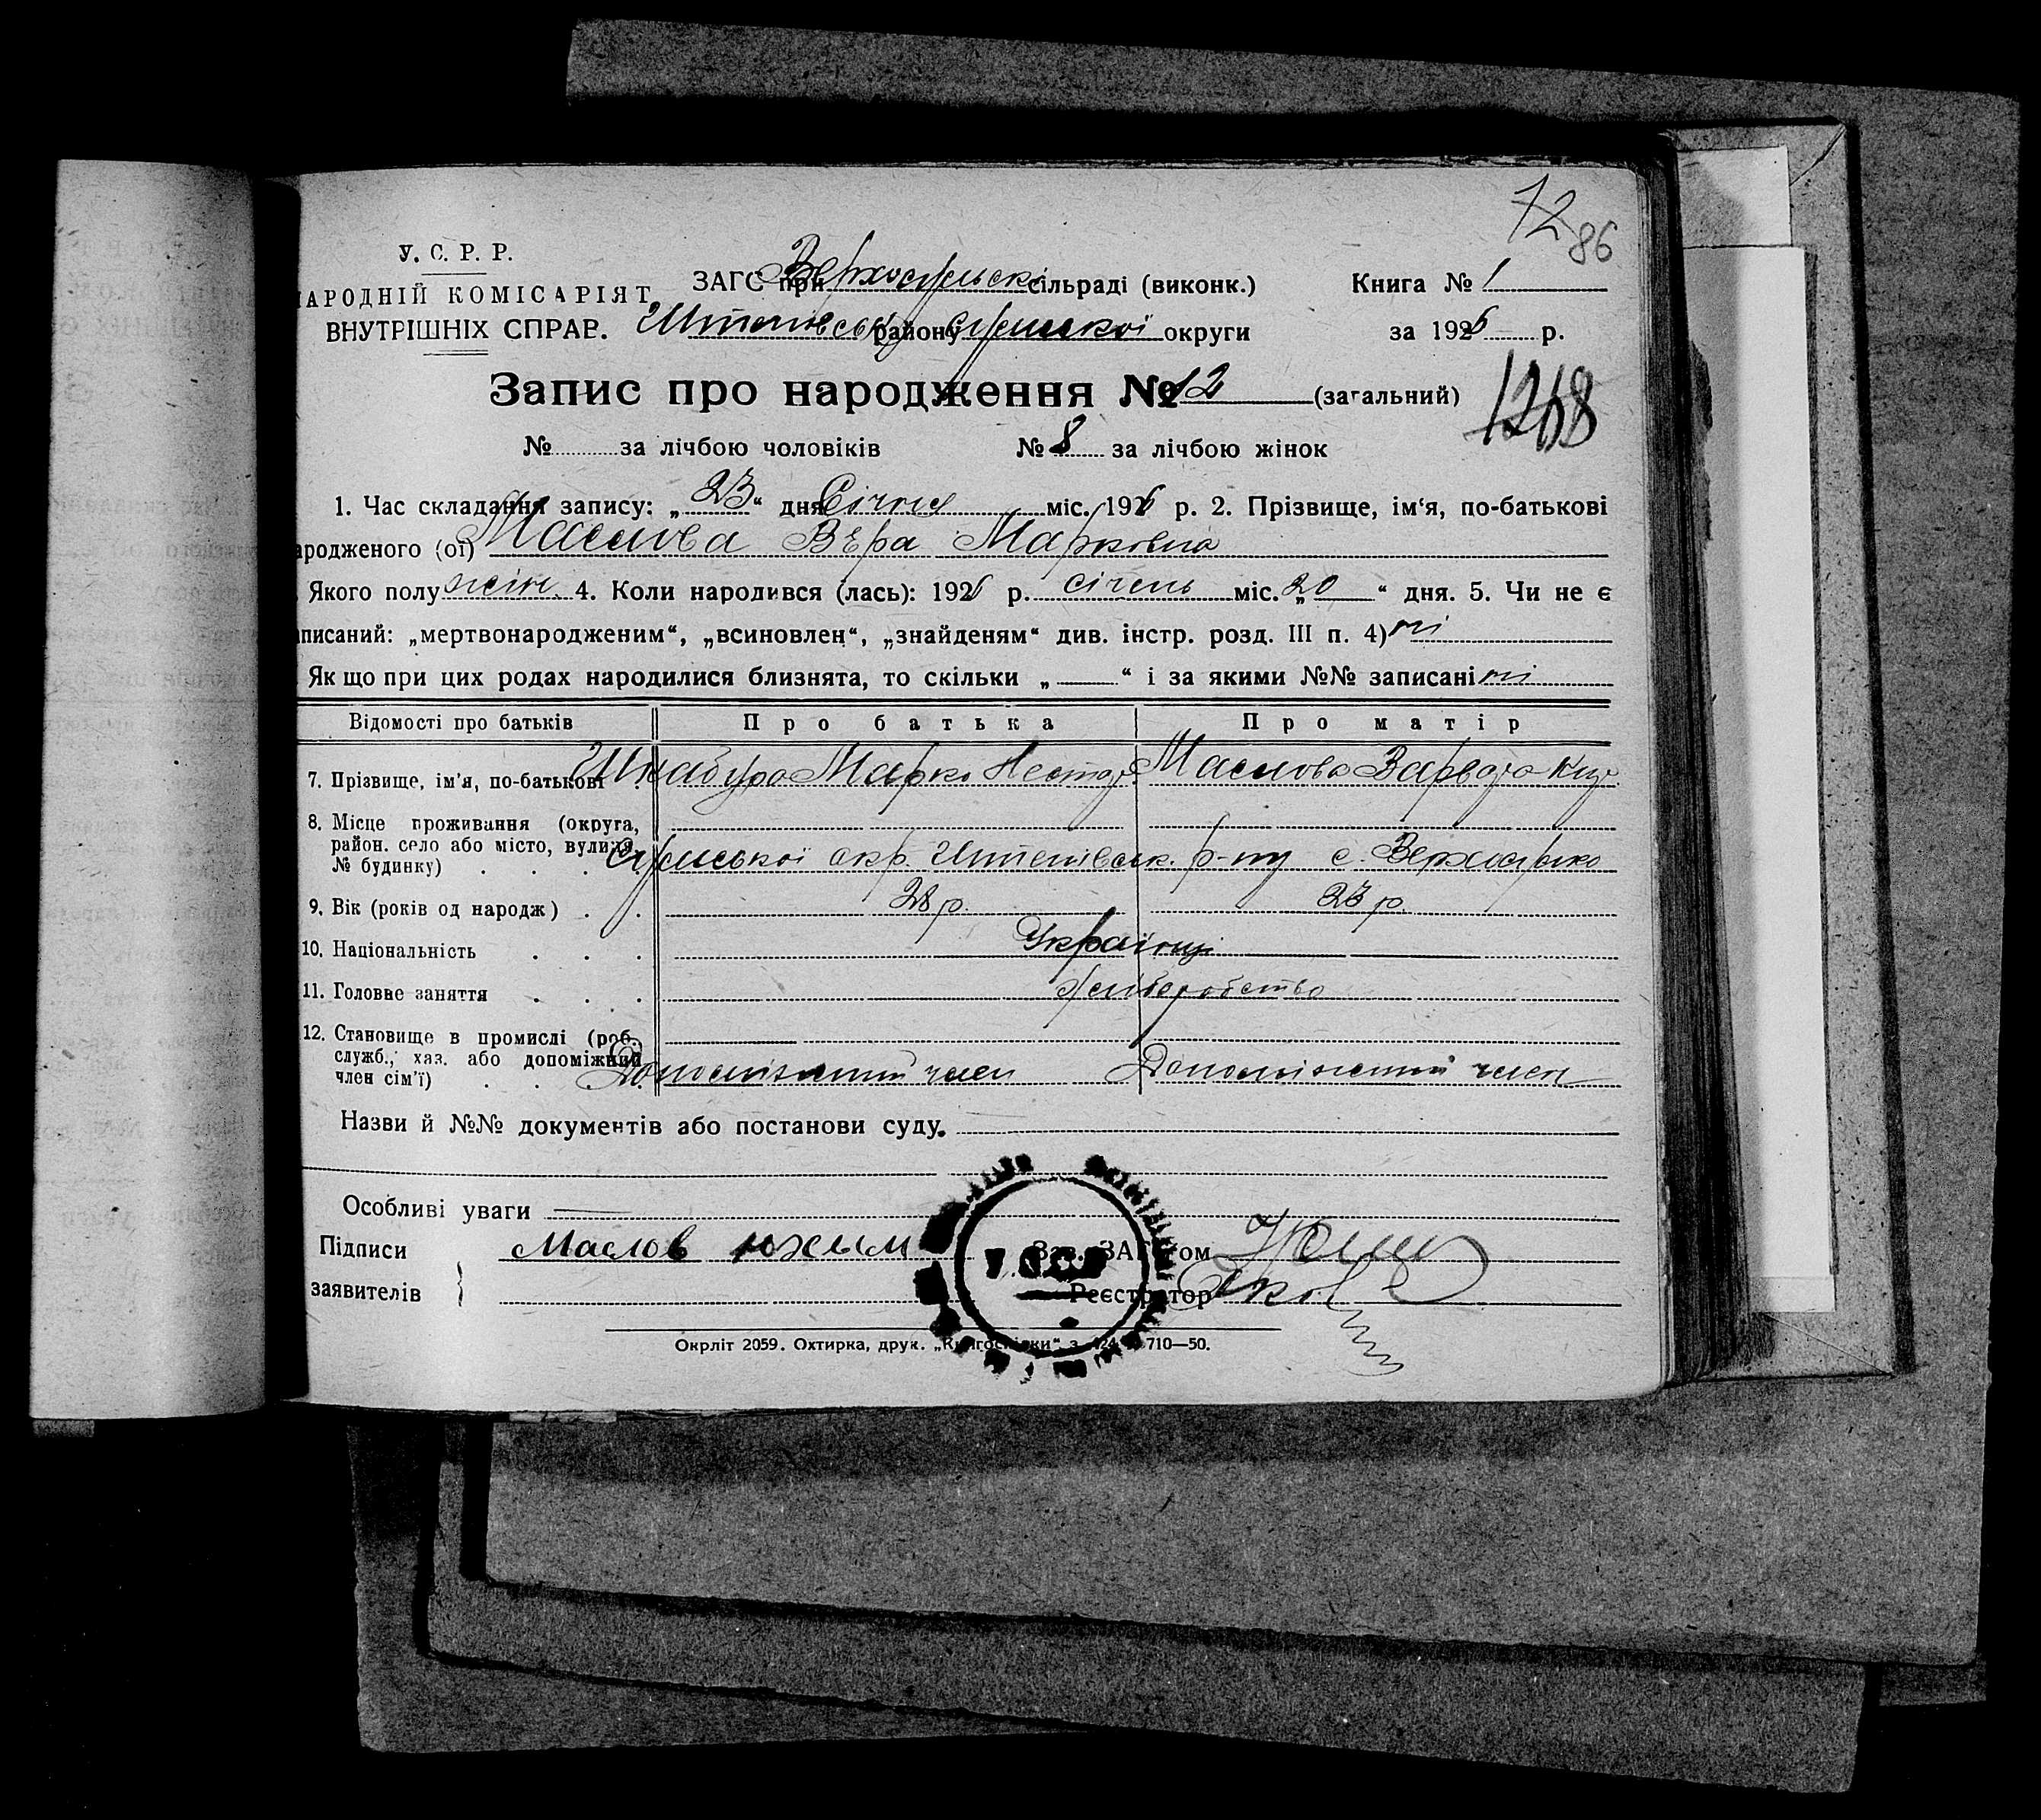 72
86
У. С. Р. Р.
АРОДНІЙ КОМІСАРІЯТ
ВНУТРІШНІХ СПРАВ.
ЗАГС при Верхосульські сільраді (виконк.)
Штепівськ району Сумської округи
Книга № 1
за 1926 р.
Запис про народження № 12 (загальний)
1268
№ за лічбою чоловіків № 8 за лічбою жінок
1. Час складання запису: „23“ дня Січня міс. 1926 р. 2. Прізвище, ім‘я, по-батькові
ародженого (ої) Маслова Вѣра Марковна
Якого полу жін. 4. Коли народився (лась): 1926 р. січень міс. „20“ дня. 5. Чи не є
писаний: „мертвонародженим“, „всиновлен“, „знайденям“ див. інстр. розд. III п. 4) ні
Якщо при цих родах народилися близнята, то скільки „—“ і за якими №№ записані ні
Відомості про батьків Про батька Про матір
7. Прізвище, ім’я, по-батькові Шкабура Марко Нестор. Маслова Варвара Куз.
8. Місце проживання (округа,
район. село або місто, вулиця,
№ будинку) Сумської окр. Штепівськ. р-ну с. Верхосулко
9. Вік (років од народж) 28 р. 23 р.
10. Національність Українці
11. Головне заняття Хліборобство
12. Становище в промислі (роб.
служб., хаз. або допоміжний
член сім’ї) Допоміжний член Допоміжний член
Назви й №№ документів або постанови суду.
Особливі уваги
Підписи Маслов Юхим Зав. ЗАГС‘ом
заявителів Реєстратор
УСРР
Окрліт 2059. Охтирка, друк. „Книгоспілки“ з. 424 710—50.